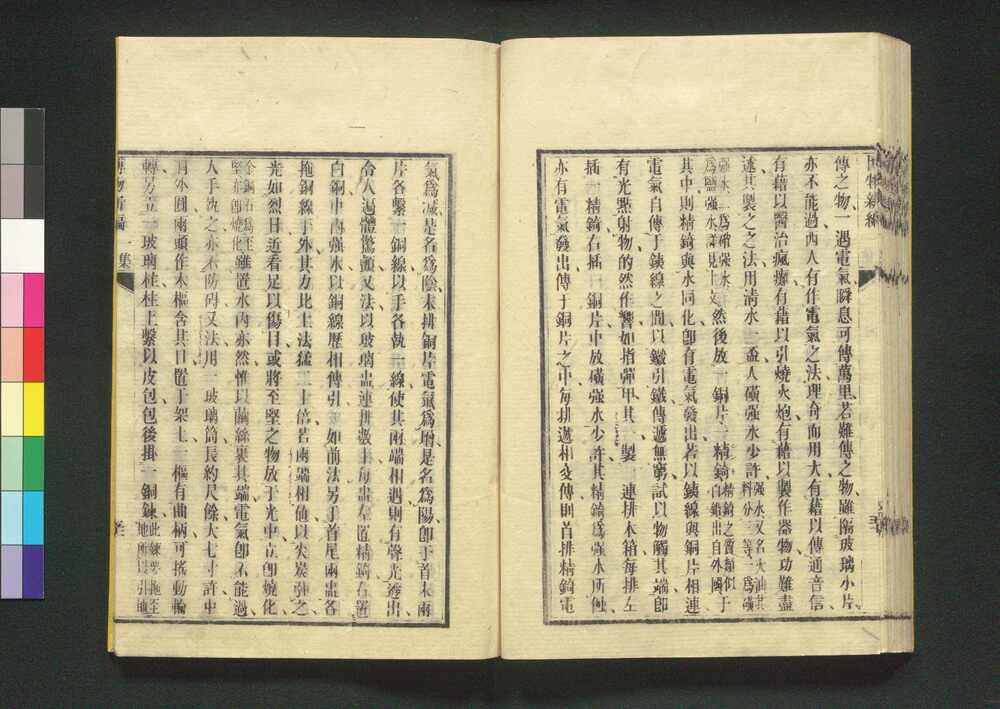 傳之物一遇電氣瞬息可傳萬里若難傳之物雖隔玻璃小片
亦不能過西人有作電氣之法理奇而用大有藉以傳通音信
有藉以醫治瘋癱有藉以引燒火炮有藉以製作器物功難盡
述其製之之法用清水一盃人磺强水少許强水又名火油其料分三等一爲磺
强水一爲硝强水一爲鹽强水詳見上文然後放一銅片一精錡精錡之質類似白鉛出自外國于
其中則精錡與水同化卽有電氣發出若以銕線與銅片相連
電氣自傳于銕線之間以鐵引鐵傳遞無窮試以物觸其端卽
有光㸃射物的然作響如指彈甲其一製一連排木箱每排左
插一精錡右插一銅片中放磺强水少許其精錡爲强水所蝕
亦有電氣發出傳于銅片之中每排遞相交傳則首排精錡電
氣爲减是名爲陰末排銅片電氣爲增是名爲陽卽于首末兩
片各繫一銅線以手各執一線使其兩端相遇則有聲光透出
令人遍體驚顫又法以玻璃盅連排數十每盅左置精錡右置
白銅中兩强水以銅線歷相傳引一如前法另于首尾兩盅各
拖銅線于外其力比上法猛二十倍若兩端相値以尖炭弹之
光如烈日近看足以傷目或將至堅之物放于光中立卽燒化
金銅石爲至堅亦卽燒化雖置水內亦然惟以繭絲裹其端電氣卽不能過
人手執之亦不防碍又法用一玻璃筒長約尺餘大七寸許中
圓外圓兩頭作木樞含其口置于架上一樞有曲柄可搖動輪
轉旁立一玻璃柱柱上繫以皮包包後掛一銅鍊此鍊要拖至地所以引地
博物新編 一集